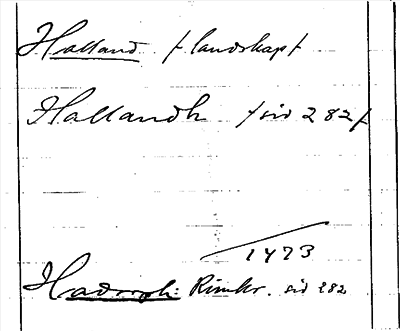 Halland /landskap/
Hallandh /sid 282/
1473
Hadorph: Rimkr. sid 282